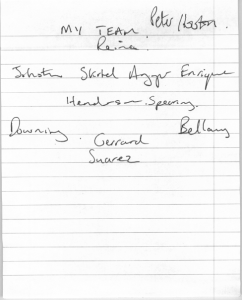 Peter Hooton.
MY TEAM
Reina
Johnson Skrtel Agger Enrique
Henderson. Spearing.
Downing. Gerrard Bellamy
Suarez